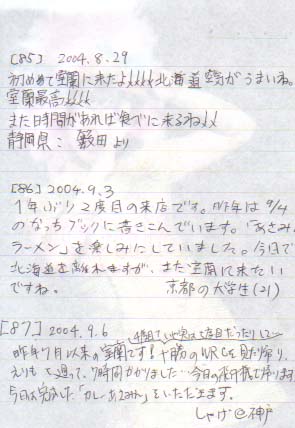 [85] 2004.8.29
初めて室蘭に来たよ!!!!北海道空気がうまいね。
室蘭最高!!!!
また日時間があれば食べに来るね!!
静岡県: 薮田より
[86] 2004.9.3
1年ぶり2度目の来店です。昨年は9/4
のなっちブックに書きこんでいます。「あさみ
ラーメン」を楽しみにしていました。今日で
北海道を離れますが、また室蘭に来たい
ですね。 京都の大学生(21)
[87] 2004.9.6
昨年7月以来の室蘭です! 十勝のWRCを見た帰り、
えりもを通って、7時間かかりました…今日の飛行機で帰ります
今日は 「カレーあさみん」をいただきます。
しゃけ@神戸